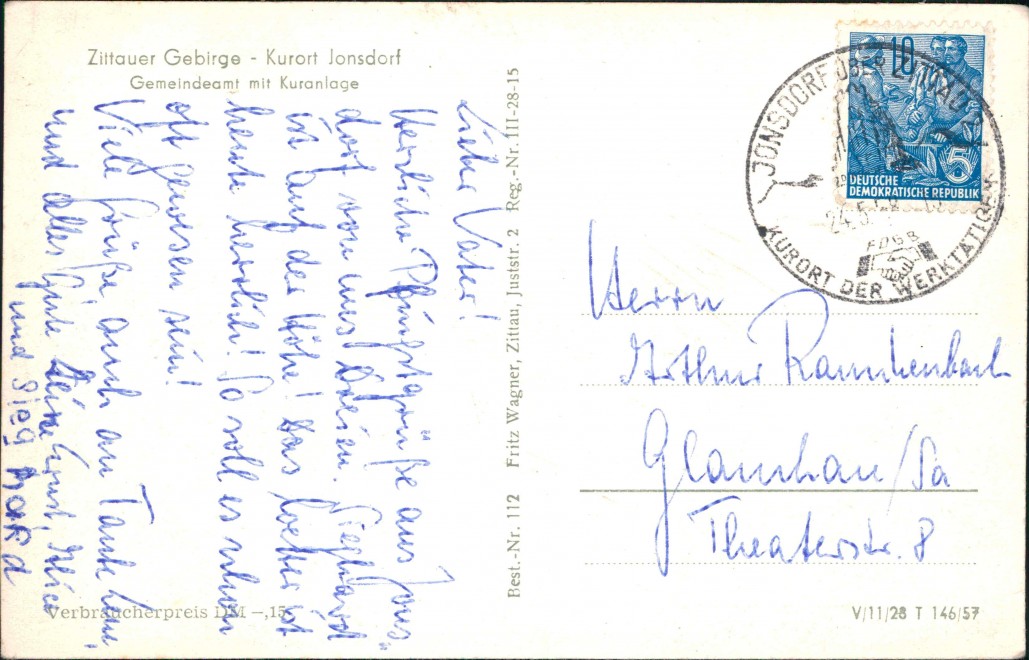 Zittauer Gebirge - Kurort Jonsdorf
Gemeindeamt mit Kuranlage
Liebe Vater!
Herzliche Pfingstgrüße aus Jons-
dorf von uns Dreien. Sieghard
ist auf der Höhe! Das Wetter ist
heute herrlich! So soll es schon
oft gewesen sein!
Viele Grüße auch an Tante
und alles Gute Deine Ernst,
und Sieg hard
Verbraucherpreis DM -,15
Best.-Nr. 112 Fritz Wagner, Zittau, Juststr. 2 Reg.-Nr. III-28-15
10
5
DEUTSCHE
DEMOKRATISCHE REPUBLIK
JONSDORF ÜBER ZITTAU
24.5.
FDGB
KURORT DER WERKTÄTIGEN
Herrn
Arthur Rauschenbach
Glauchau/Sa
Theaterstr. 8
V/11/28 T 146/57